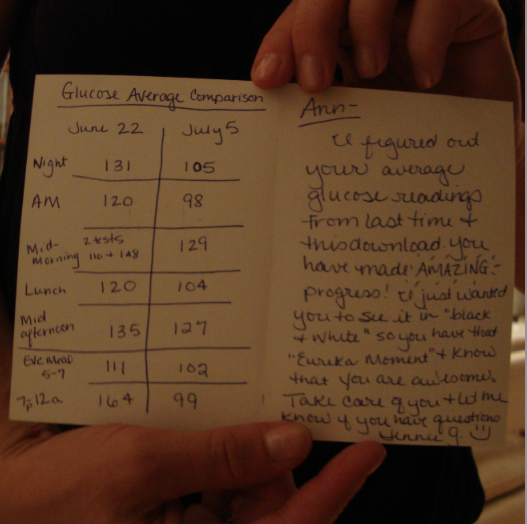 Glucose Average Comparison
June 22 July 5
Night 131 105
AM 120 98
Mid-
morning 2 tests
110 + 148 129
Lunch 120 104
Mid
afternoon 135 127
Eve Meal
5-7 111 102
7p-12a 164 99
Ann-
I figured out
your average
glucose readings
from last time +
this download. You
have made AMAZING
progress! I just wanted
you to see it in "black
+ white" so you have that
"Eureka Moment" + know
that you are awesome.
Take care of you + let me
know if you have questions
Jennie G.